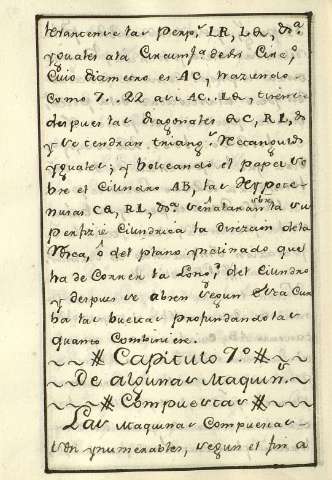 levantense las Perp.s LR, LQ, &.a
yguales ala Circumf.a de dho Circ.o
Cuio diametro es AC, haziendo
como 7..22 asi AC..LQ, tirense
despues las diagonales QC, RL, &
y se tendran triang.s Rectangulos
yguales; y bolteando el papel so
bre el Cilindro AB, las Hypote
nusas CQ, RL, &.a señalaran sobre la su
perfizie Cilindrica la direzion dela
Rosca, ô del plano ynclinado que
ha de Correr la Long.d del Cilindro
y despues se abren segun esta Cur
ba las bueltas profundandolas
quanto Combiniere.
Capitulo 7.o
De algunas Maquin.s
Compuestas
Las Maquinas Compuestas
son ynumerables, segun el fin a